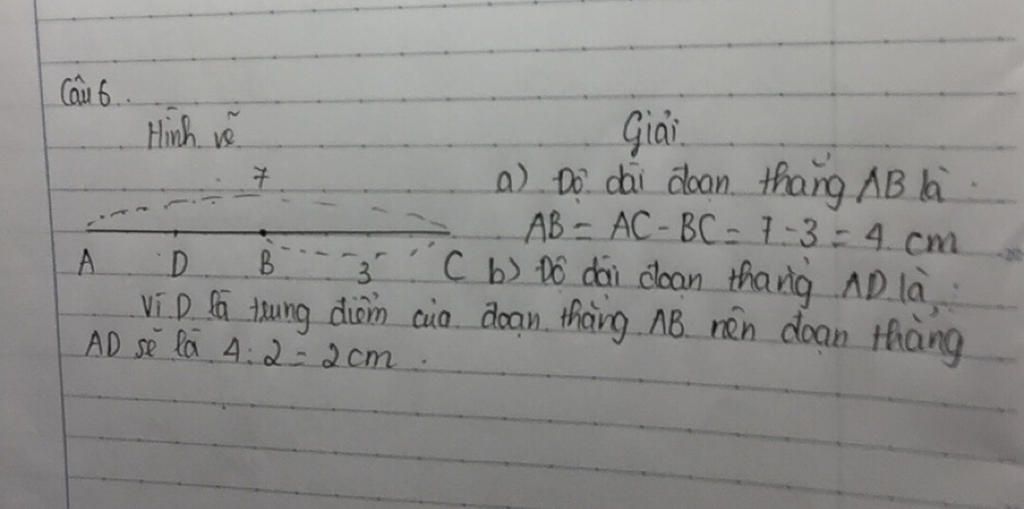 Câu 6.
Hình vẽ
Giải
7
a) Độ dài đoạn thẳng AB là :
AB = AC - BC = 7 - 3 = 4 cm
A D B 3 C
b) Độ dài đoạn thẳng AD là :
Vì D là trung điểm của đoạn thẳng AB nên đoạn thẳng
AD sẽ là 4 : 2 = 2 cm .